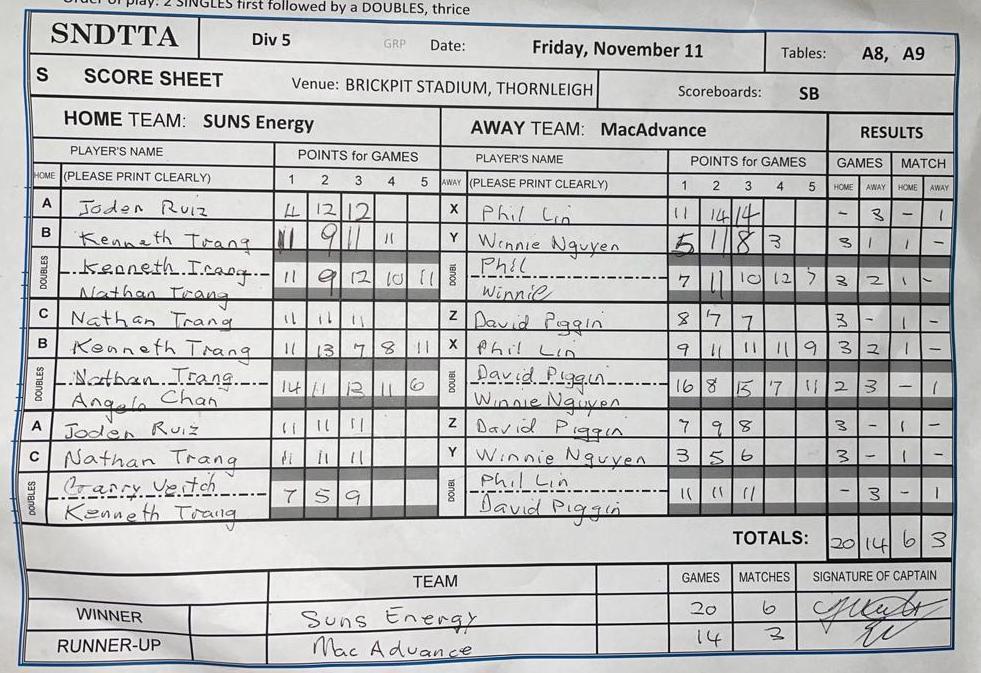 Order of play: 2 SINGLES first followed by a DOUBLES, thrice
SNDTTA Div 5 GRP Date: Friday, November 11 Tables: A8, A9
S SCORE SHEET Venue: BRICKPIT STADIUM, THORNLEIGH Scoreboards: SB
HOME TEAM: SUNS Energy AWAY TEAM: MacAdvance RESULTS
PLAYER'S NAME POINTS for GAMES PLAYER'S NAME POINTS for GAMES GAMES MATCH
HOME (PLEASE PRINT CLEARLY) 1 2 3 4 5 AWAY (PLEASE PRINT CLEARLY) 1 2 3 4 5 HOME AWAY HOME AWAY
A Joden Ruiz 4 12 12 X Phil Lin 11 14 14 - 3 - 1
B Kenneth Trang 11 9 11 11 Y Winnie Nguyen 5 11 8 3 3 1 1 -
DOUBLES Kenneth Trang 11 9 12 10 11 DOUBL Phil 7 11 10 12 7 3 2 1 -
Nathan Trang Winnie
C Nathan Trang 11 11 11 Z David Piggin 8 7 7 3 - 1 -
B Kenneth Trang 11 13 7 8 11 X Phil Lin 9 11 11 11 9 3 2 1 -
DOUBLES Nathan Trang 14 11 13 11 6 DOUBL David Piggin 16 8 15 7 11 2 3 - 1
Angelo Chan Winnie Nguyen
A Joden Ruiz 11 11 11 Z David Piggin 7 9 8 3 - 1 -
C Nathan Trang 11 11 11 Y Winnie Nguyen 3 5 6 3 - 1 -
DOUBLES Garry Veitch 7 5 9 DOUBL Phil Lin 11 11 11 - 3 - 1
Kenneth Trang David Piggin
TOTALS: 20 14 6 3
TEAM GAMES MATCHES SIGNATURE OF CAPTAIN
WINNER Suns Energy 20 6
RUNNER-UP Mac Advance 14 3